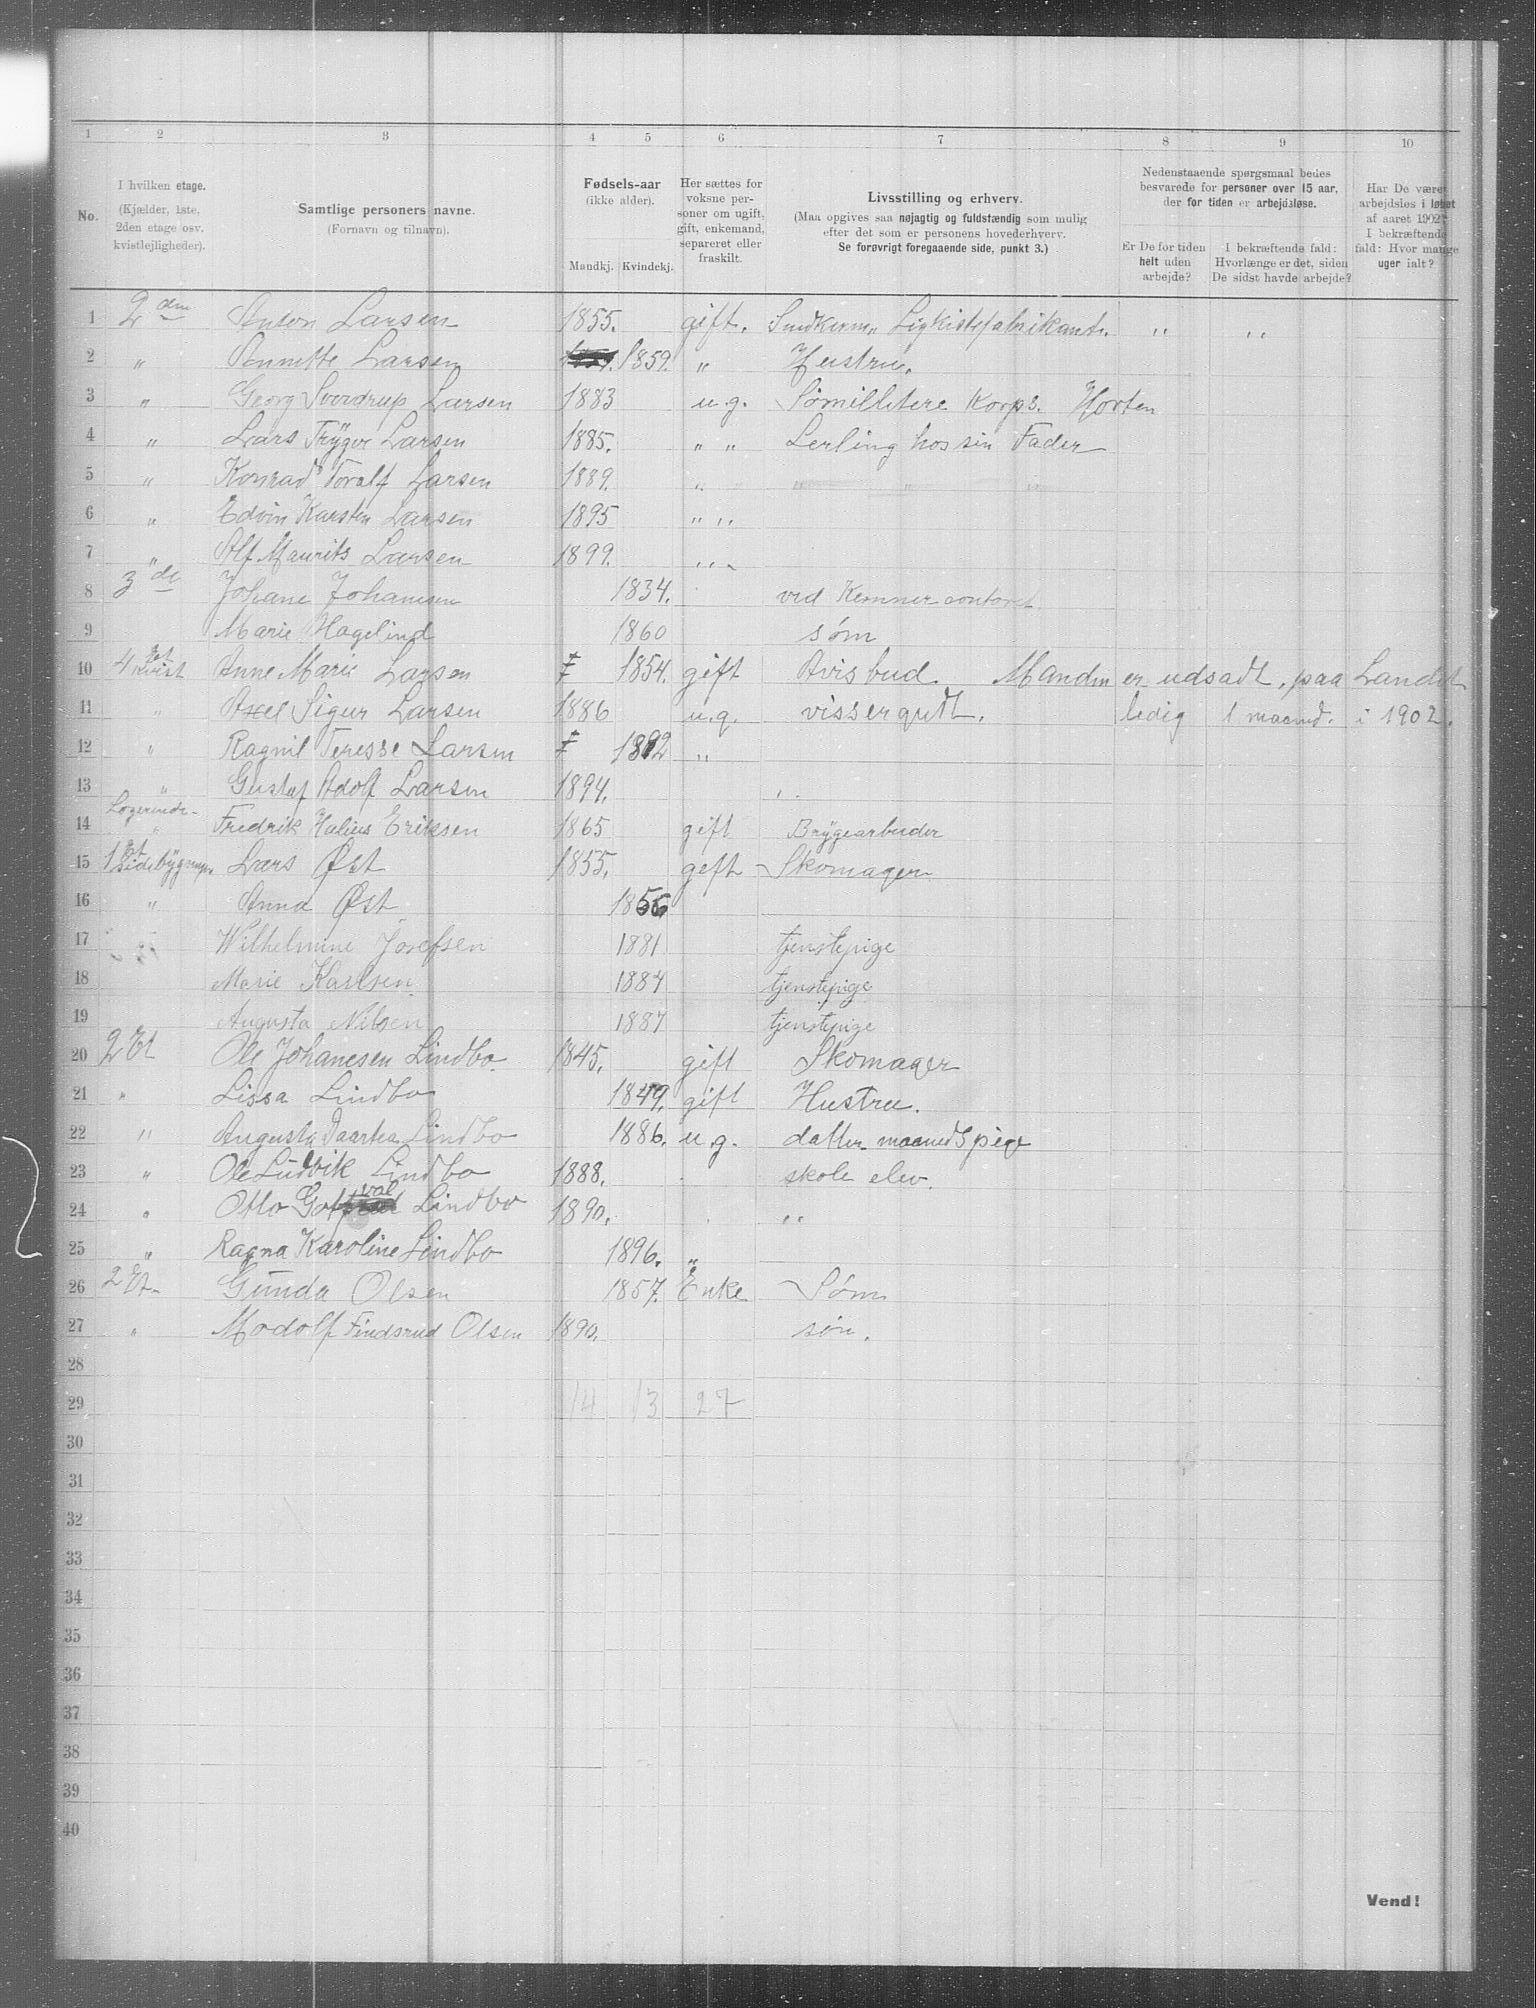 1 2 3 4 5 6 7 8 9 10
No.
I hvilken etage.
(Kjælder, 1ste,
2den etage osv.
kvistlejligheder).
Samtlige personers navne.
(Fornavn og tilnavn).
Fødsels-aar
(ikke alder).
Mandkj. Kvindekj.
Her sættes for
voksne per-
soner om ugift,
gift, enkemand,
separeret eller
fraskilt.
Livsstilling og erhverv.
(Maa opgives saa nøjagtig og fuldstændig som mulig
efter det som er personens hovederhverv.
Se forøvrigt foregaaende side, punkt 3.)
Nedenstaaende spørgsmaal bedes
besvarede for personer over 15 aar,
der for tiden er arbejdsløse.
Er De for tiden
helt uden
arbejde?
I bekræftende fald:
Hvorlænge er det, siden
De sidst havde arbejde?
Har De været
arbejdsløs i løbet
af aaret 1902?
I bekræftende
fald: Hvor mange
uger ialt?
1 2den Anton Larsen 1855. gift. Snedkerm., Ligkistefabrikant. " "
2 " Larsen 1859. " Hustru.
3 " Georg Sverdrup Larsen 1883 u.g. Sømillitere Korps. Horten
4 " Lars Trÿgve Larsen 1885. " " Lerling hos sin Fader
5 " Konrad Toralf Larsen 1889. " " " " "
6 " Edvin Karsten Larsen 1895 " "
7 " Alf Maurits Larsen 1899. " "
8 3de Johane Johansen 1834. ved Kemner contoret
9 Marie Hagelind 1860 søm
10 4 et kvist Anne Marie Larsen 1854. gift Avisbud. Manden er udsadt, paa Landet
11 " Axel Sigur Larsen 1886 u.g. vissergutt. ledig 1 maaned. i 1902.
12 " Ragnil Teresse Larsen 1892 "
13 " Gustaf Adolf Larsen 1894. "
14 Logerende " Fredrik Eriksen 1865 gift Brÿgearbeider
15 1 et Sidebÿgningen Lars Øst 1855. gift Skomager
16 " Anna Øst
17 Wilhelmine Josefsen 1881 tjenstepige
18 Marie Karlsen 1884 tjenstepige
19 Augusta Nilsen 1887 tjenstepige
20 2 Et Ole Johanesen Lindbo. 1845. gift Skomager
21 " Lissa Lindbo 1849. gift Hustru.
22 " Augusta Daartea Lindbo 1886. u.g. datter maanedspige
23 " Ole Ludvik Lindbo 1888. skole elev.
24 " Otto Lindbo 1890. "
25 " Ragna Karoline Lindbo 1896. "
26 2 Et. Gunda Olsen 1857. Enke Søm
27 " Modolf Findsrud Olsen 1890. søn.
28
29 14 13 27
30
31
32
33
34
35
36
37
38
39
40
Vend!